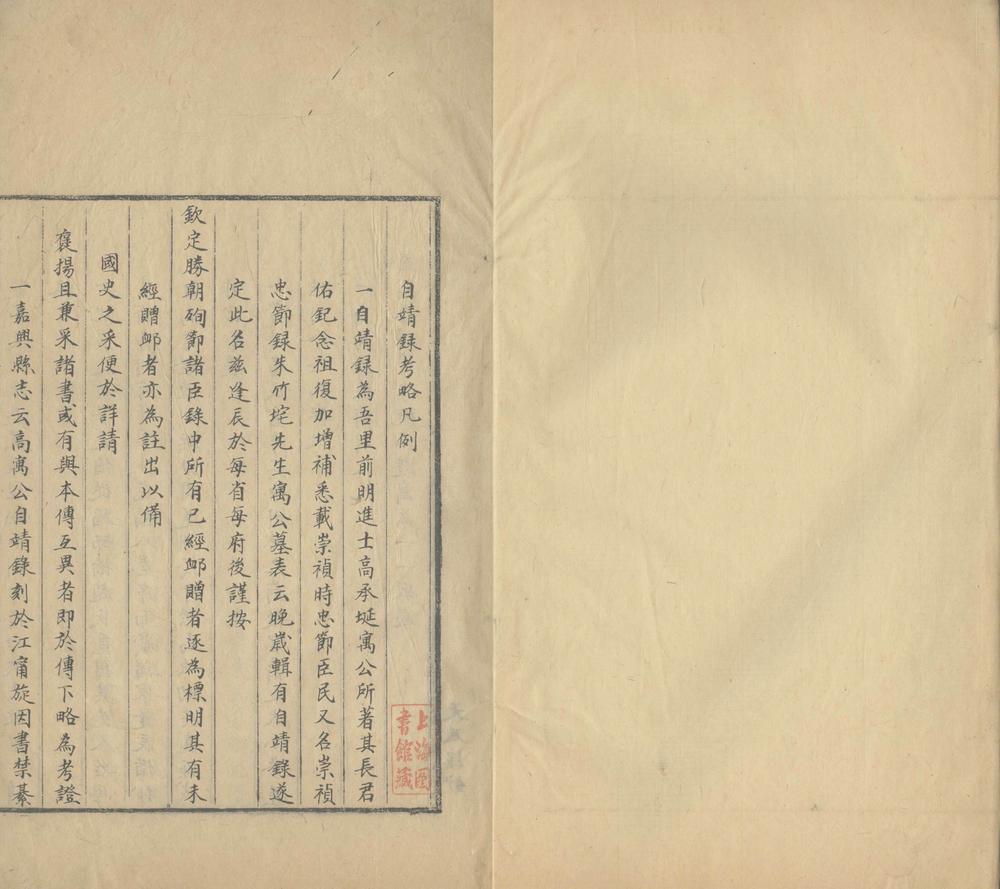 自靖録考略凡例
一自靖録為吾里前明進士高承埏寓公所著其長君
佑釲念祖復加增補悉載崇禎時忠節臣民又名崇禎
忠節録朱竹垞先生寓公墓表云晚歲輯有自靖錄遂
定此名兹逢辰於每省每府後謹按
欽定勝朝殉節諸臣錄中所有已經卹贈者逐為標明其有未
經贈卹者亦為註出以備
國史之采便於詳請
襃揚且兼采諸書或有與本傳互異者即於傳下略為考證
一嘉興縣志云高寓公自靖錄刻於江甯旋因書禁綦
上海圖書館藏